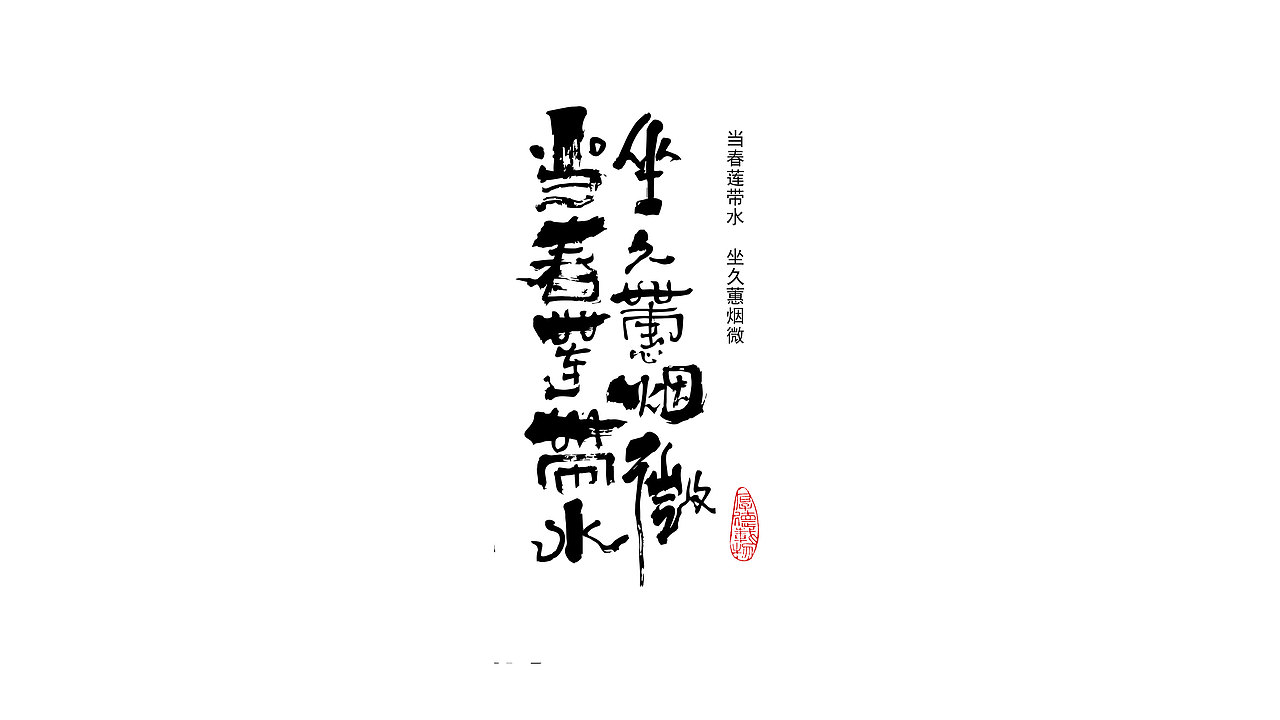 当春莲带水
坐久蕙烟微
当春莲带水 坐久蕙烟微
厚德载物